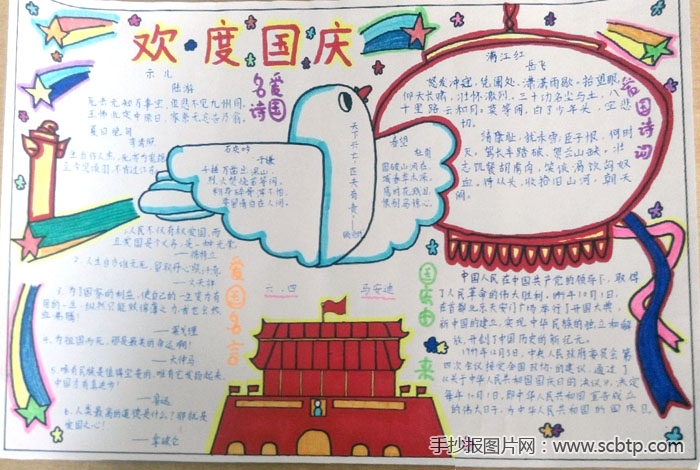 欢度国庆
示儿
陆游
死去元知万事空,但悲不见九州同。
王师北定中原日,家祭无忘告乃翁。
夏日绝句
李清照
生当作人杰,死亦为鬼雄。
至今思项羽,不肯过江东。
爱国名诗
石灰吟
于谦
千锤万凿出深山,
烈火焚烧若等闲。
粉骨碎身浑不怕,
要留清白在人间。
天下兴亡,匹夫有责——
顾炎武
春望
杜甫
国破山河在,
城春草木深。
感时花溅泪,
恨别鸟惊心。
满江红
岳飞
怒发冲冠,凭阑处、潇潇雨歇,抬望眼,
仰天长啸,壮怀激烈,三十功名尘与土,八
千里路云和月。莫等闲,白了少年头,空悲
切。
靖康耻,犹未雪,臣子恨,何时
灭。驾长车踏破,贺兰山缺,壮
志饥餐胡虏肉,笑谈渴饮匈奴
血。待从头,收拾旧山河,朝天
阙。
爱国诗词
1、人民不仅有权爱国,而
且爱国是个义务,是一种光荣。
——徐特立
2、人生自古谁无死,留取丹心照汗青。
——文天祥
3、为了国家的利益,使自己的一生变为有
用的一生,纵然只能效绵薄之力,我也会热
血沸腾!
——果戈理
4、为祖国而死,那是最美的命运啊!
——大仲马
5、唯有民族魂是值得宝贵的,唯有它发扬起来,
中国才有真进步!
——鲁迅
6、人类最高的道德是什么?那就是
爱国之心!
——拿破仑
爱国名言
六、四
马安迪
国庆由来
中国人民在中国共产党的领导下,取得
了人民革命的伟大胜利,1949年10月1日,
在首都北京天安门广场举行了开国大典,
新中国的建立,实现中华民族的独立和解
放,开创了中国历史的新纪元。
1949年12月3日,中央人民政府委员会第
四次会议接受全国政协的建议,通过了
《关于中华人民共和国国庆日的决议》,决定
每年10月1日,即中华人民共和国宣告成立
的伟大日子,为中华人民共和国的国庆日。
手抄报图片网:www.scbtp.com